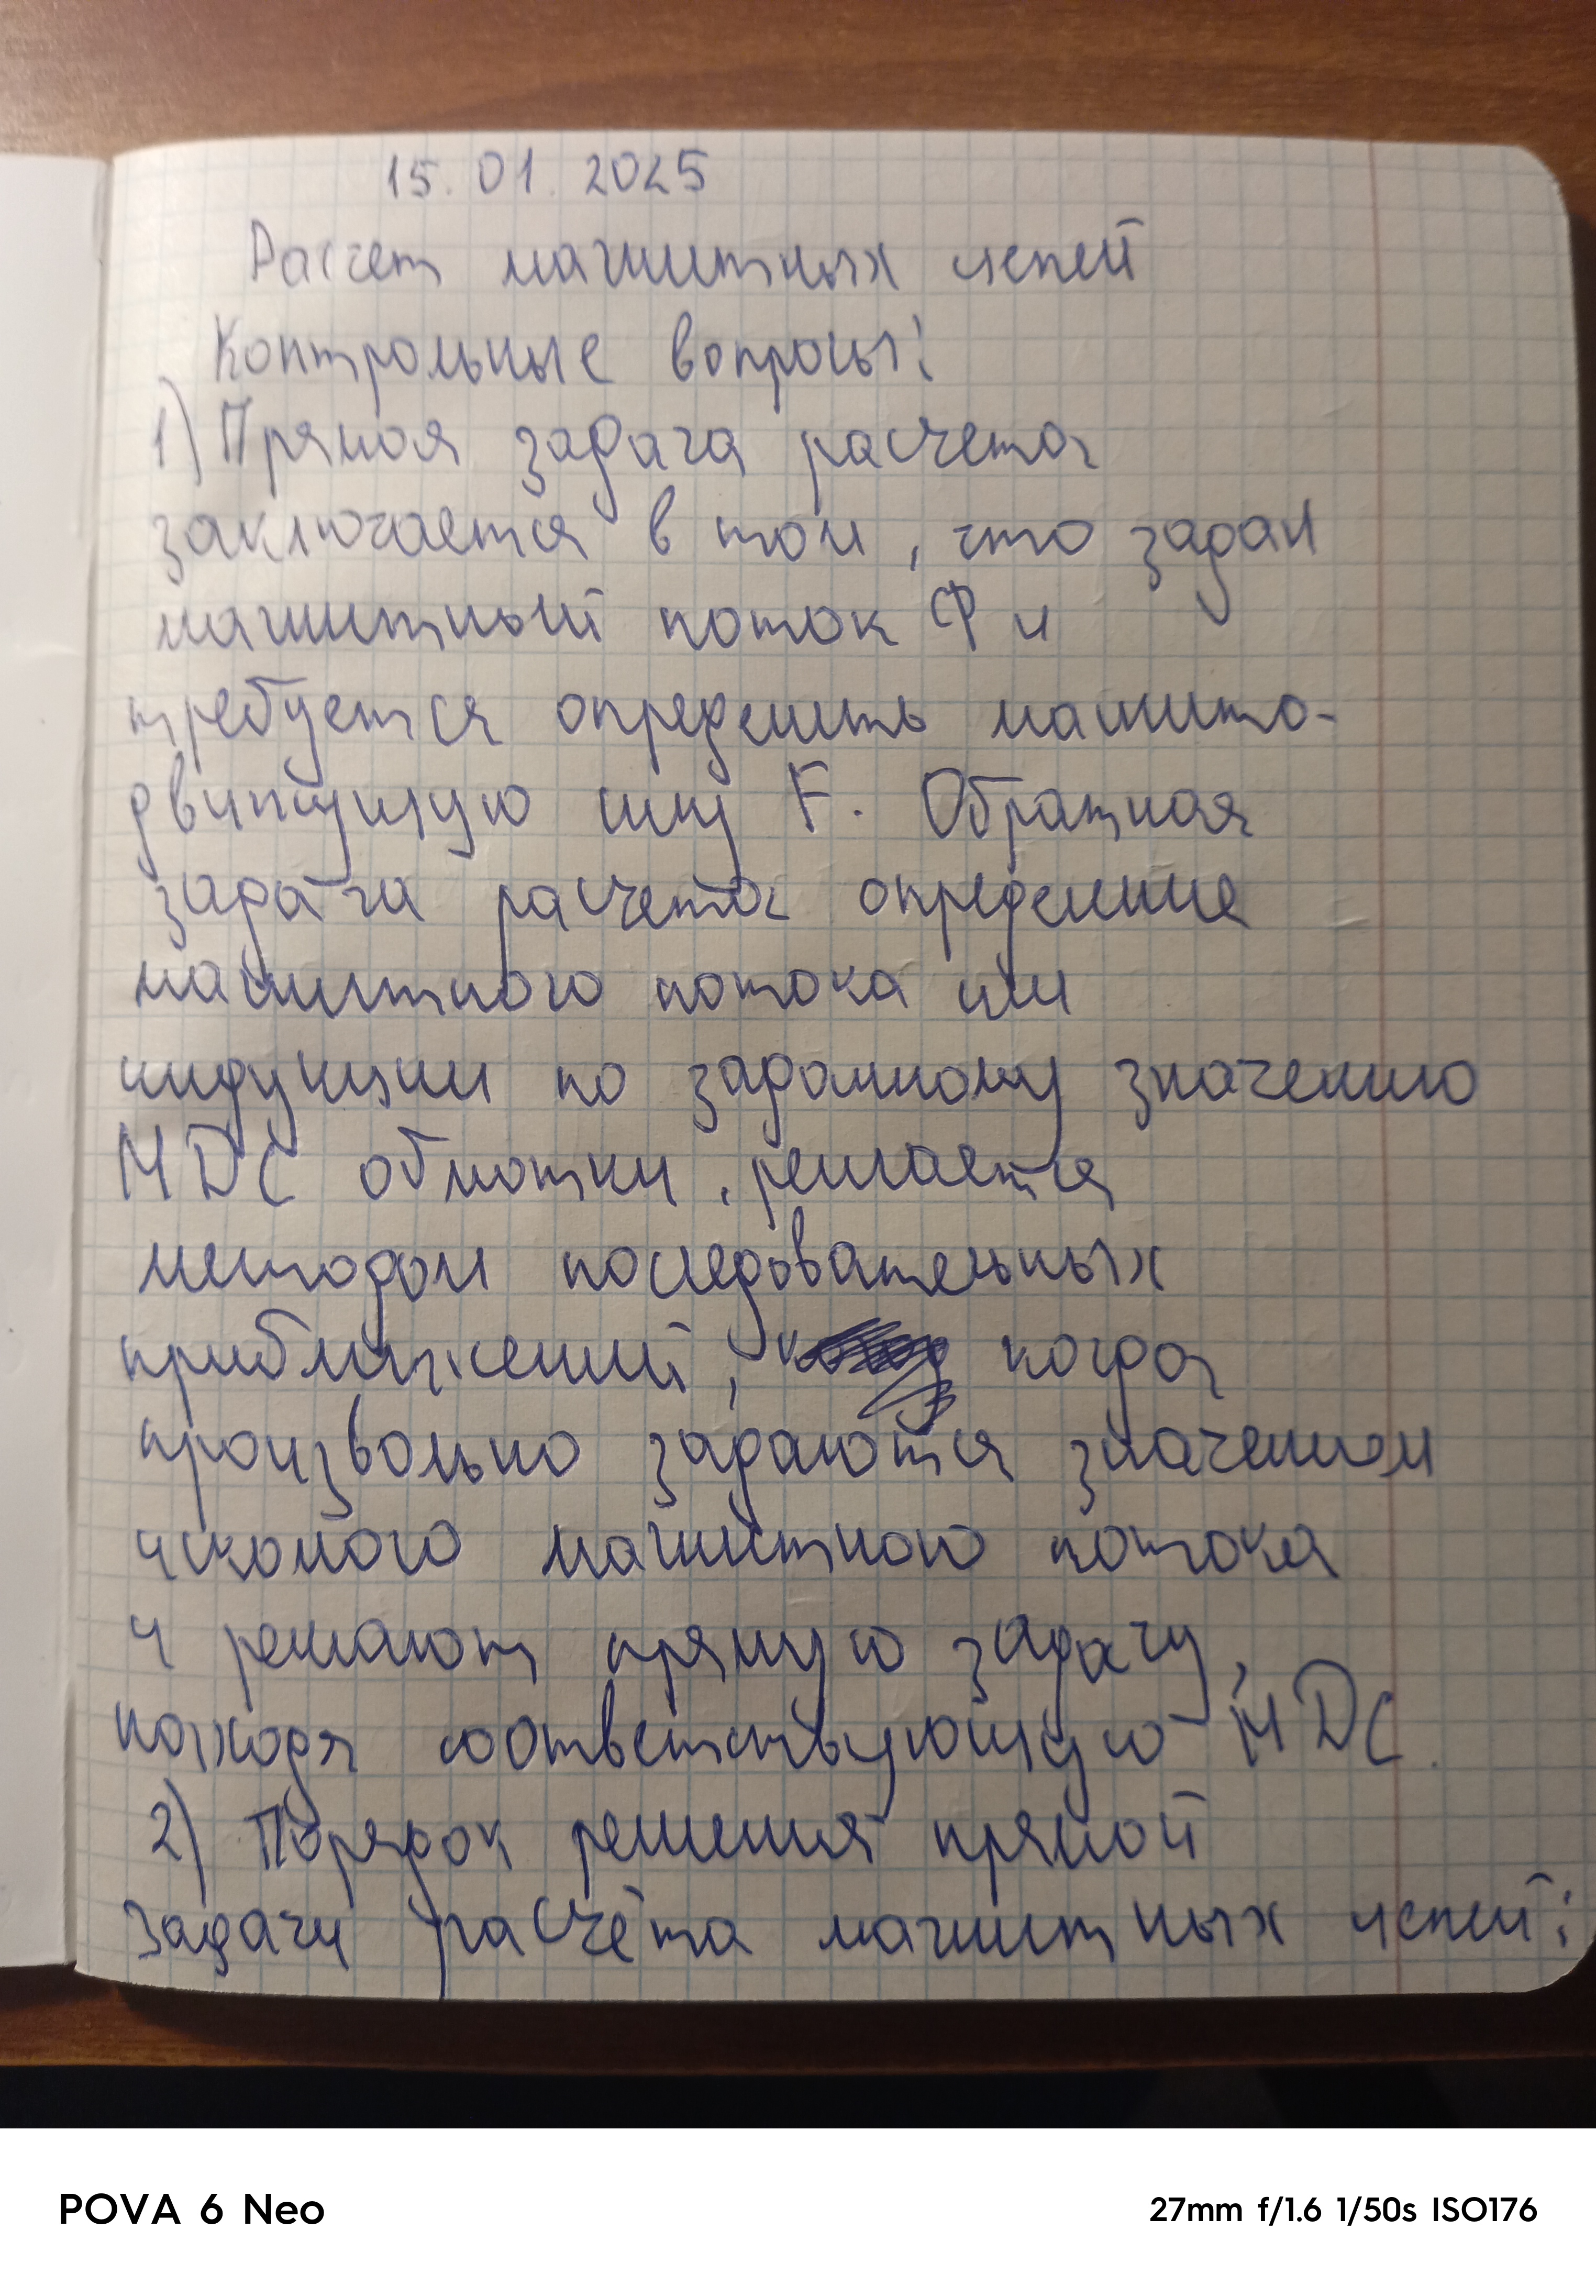 15.01.2025
Расчет магнитных цепей
Контрольные вопросы:
1) Прямая задача расчета
заключается в том, что задан
магнитный поток Ф и
требуется определить магнито-
движущую силу F. Обратная
задача расчета определение
магнитного потока или
индукции по заданному значению
МДС обмотки, решается
методом последовательных
приближений, когда
произвольно задаются значением
искомого магнитного потока
и решают прямую задачу,
находя соответствующую МДС.
2) Порядок решения прямой
задачи расчёта магнитных цепей:
POVA 6 Neo
27mm f/1.6 1/50s ISO176